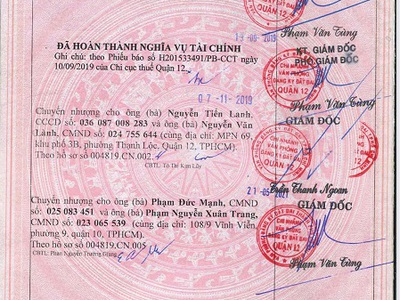 13-09-2019
Phạm Văn Tùng
ĐÃ HOÀN THÀNH NGHĨA VỤ TÀI CHÍNH
KT. GIÁM ĐỐC
PHÓ GIÁM ĐỐC
Ghi chú: theo Phiếu báo số H201533491/PB-CCT ngày
10/09/2019 của Chi cục thuế Quận 12.
CHI NHÁNH
VĂN PHÒNG
ĐĂNG KÝ ĐẤT ĐAI
QUẬN 12
07-11-2019
Phạm Văn Tùng
GIÁM ĐỐC
Chuyển nhượng cho ông (bà) Nguyễn Tiến Lanh,
CCCD số: 036 087 008 283 và ông (bà) Nguyễn Văn
Lành, CMND số: 024 755 644 (cùng địa chỉ: MPN 69,
khu phố 3B, phường Thạnh Lộc, Quận 12, TPHCM).
Theo hồ sơ số 004819.CN.002.
CBTL: Tô Thị Kim Lũy
CHI NHÁNH
VĂN PHÒNG
ĐĂNG KÝ ĐẤT ĐAI
QUẬN 12
21-05-2021
Trần Thanh Ngoan
Chuyển nhượng cho ông (bà) Phạm Đức Mạnh, CMND
số: 025 083 451 và ông (bà) Phạm Nguyễn Xuân Trang, CMND
số: 023 065 539 (cùng địa chỉ: 108/9 Vĩnh Viễn,
phường 9, quận 10, TPHCM)
Theo hồ sơ số 004819.CN.005
CBTL: Phan Nguyễn Trường Giang
GIÁM ĐỐC
CHI NHÁNH
VĂN PHÒNG
ĐĂNG KÝ ĐẤT ĐAI
QUẬN 12
Phạm Văn Tùng